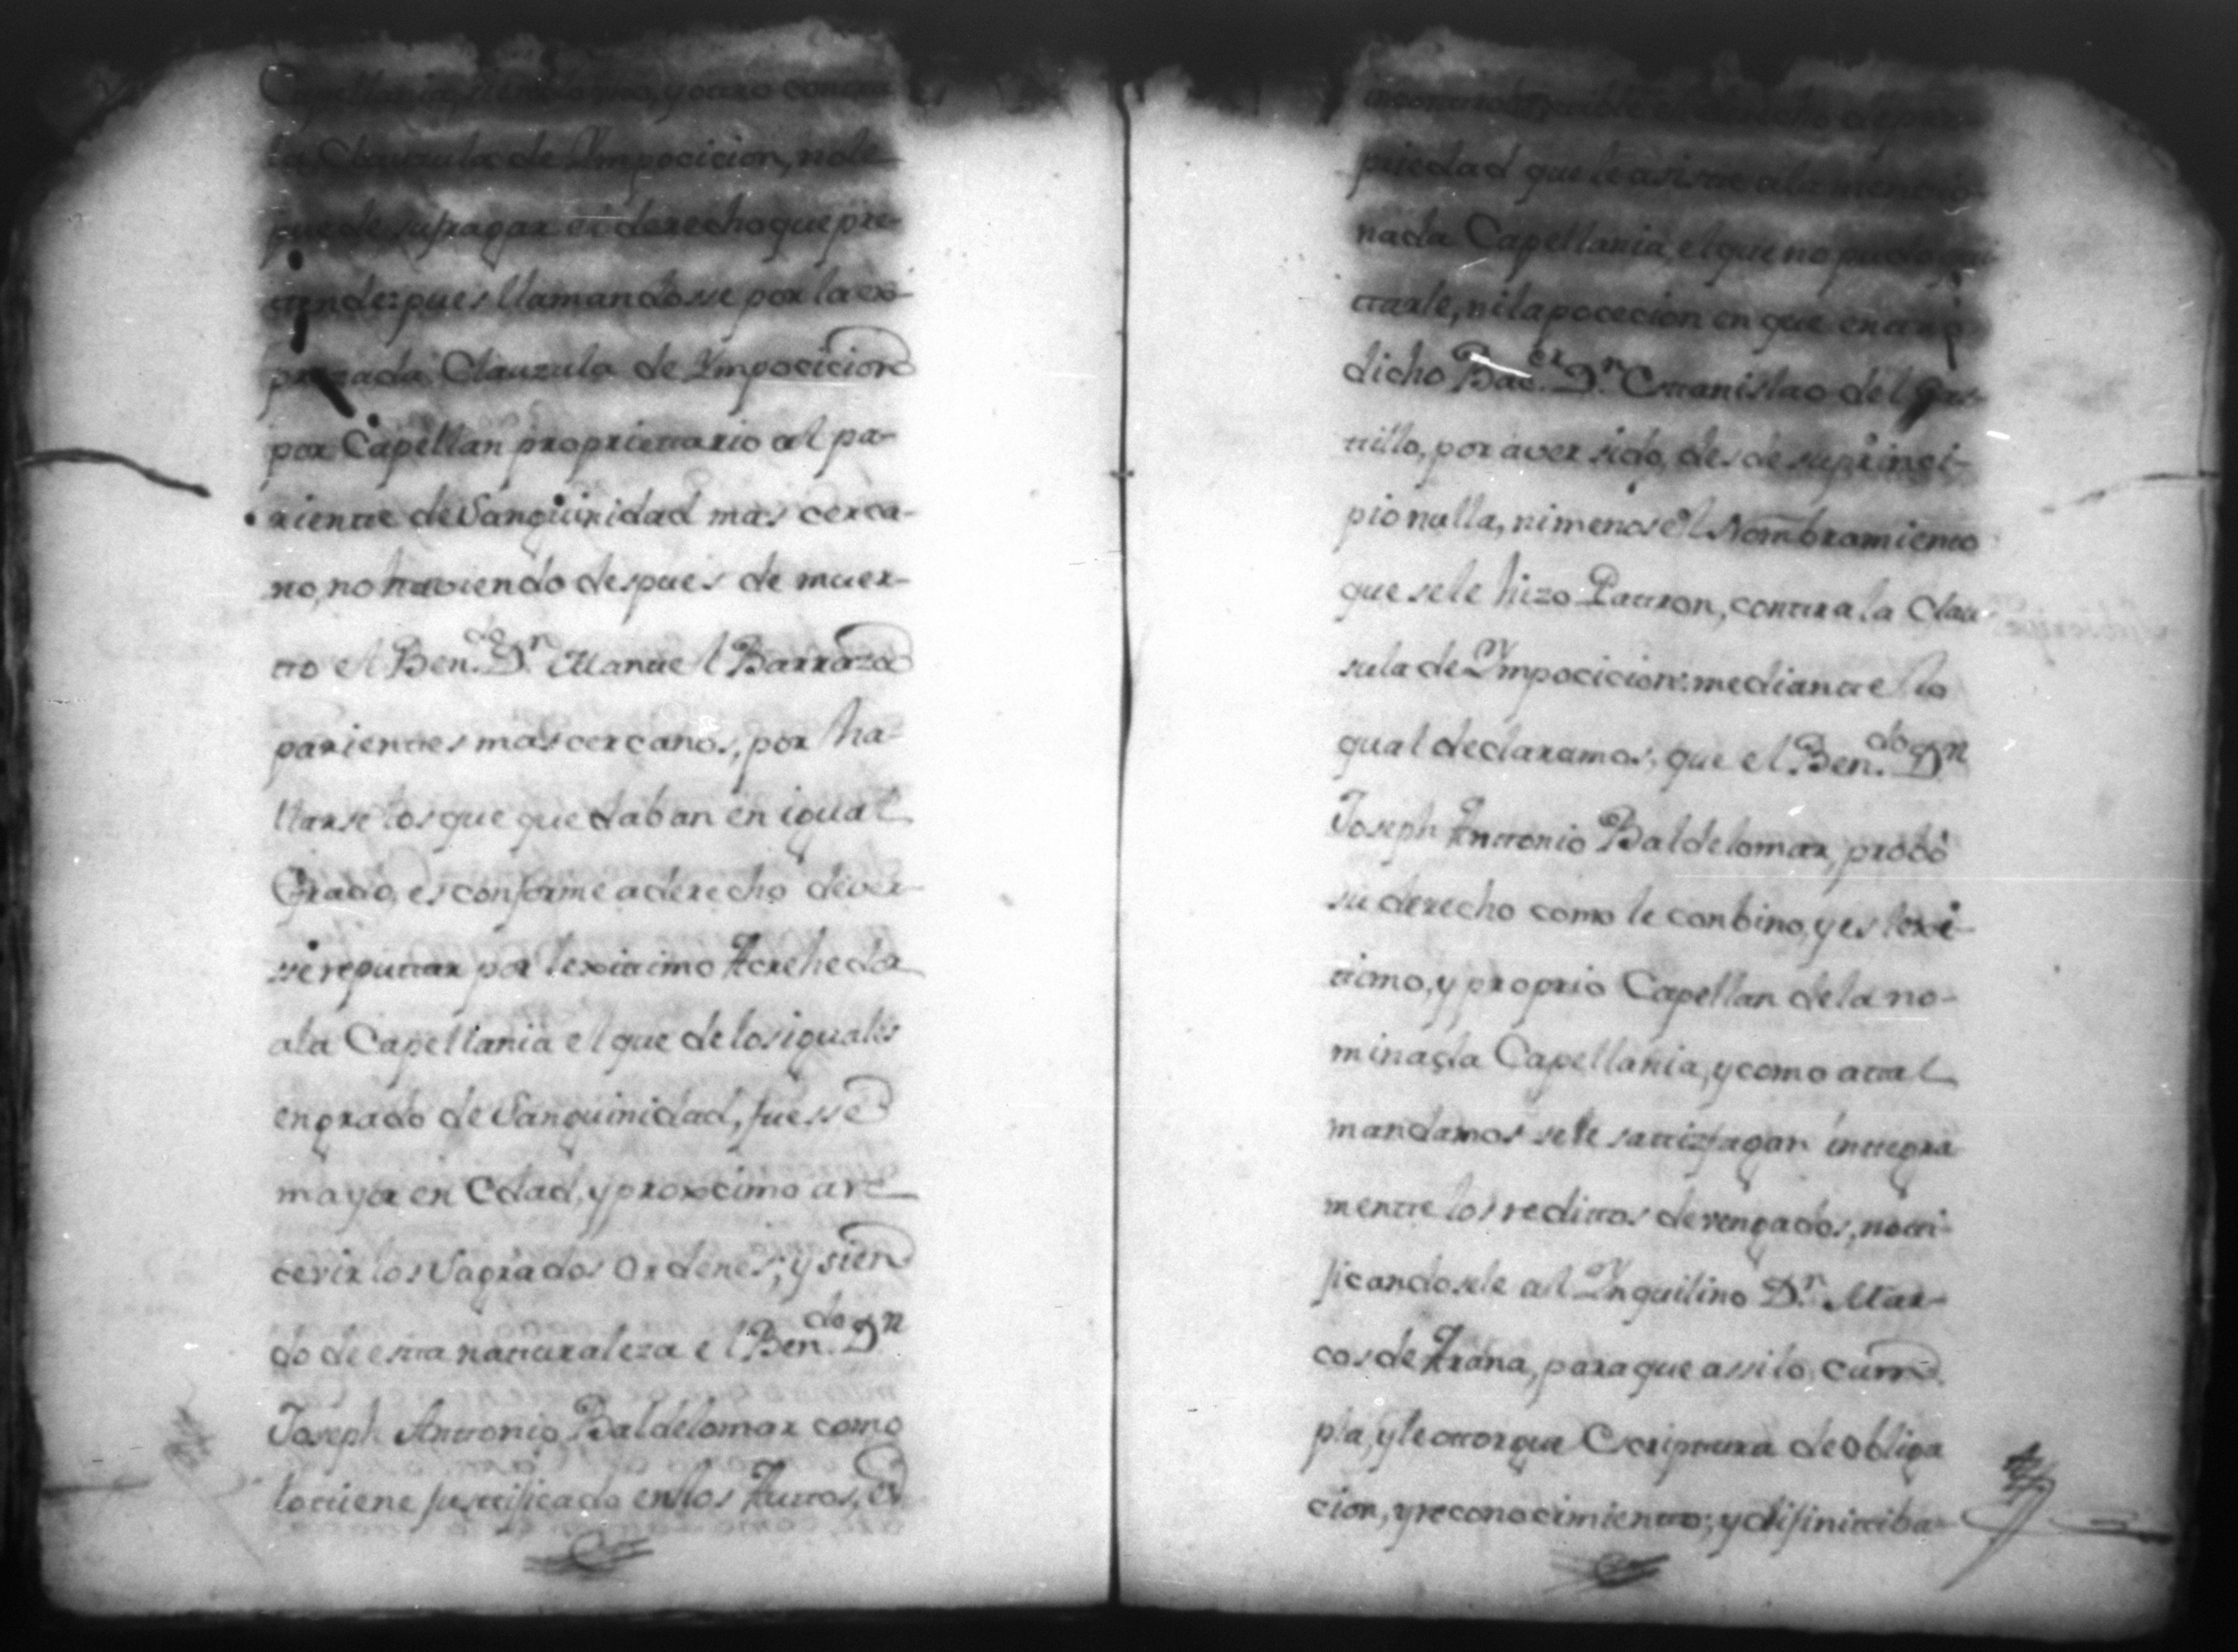 Capellania, siendo uno, y otro contra
la Clauzula de Ymposicion, no le
puede sufragar el derecho que pre-
ttende: pues llamandosse por la ex-
prezada Clauzula de Ymposicion
por Capellan proprietario al pa-
riente de Sanguinidad mas cerca-
no, no haviendo despues de muer-
tto el Ben.do D.n Manuel Barraza
parientes mas cercanos, por ha-
llarse los que quedaban en igual
Grado, es conforme a derecho dever-
se reputtar por lexittimo Acrehedor
ala Capellania el que de los iguales
en grado de Sanguinidad, fuesse
mayor en Edad, y proxcimo a re-
cevir los Sagrados Ordenes; y sien
do de estta natturaleza el Ben.do D.n
Joseph Anttonio Baldelomar como
lo ttiene justtificado en los Auttos, es
el derecho
piedad que le asiste ala mencio-
nada Capellania, el que no pudo qui
ttarle, ni la pocecion en que entró
dicho Bac.er D.n Esttanislao del Cas-
ttillo, por aver sido, desde su princi-
pio nulla, ni menos el Nombramientto
que se le hizo Pattron, conttra la Clau-
sula de Ympocicion: mediantte lo
qual declaramos, que el Ben.do D.n
Joseph Anttonio Baldelomar, probó
su derecho como le conbino, y es lexi-
ttimo, y proprio Capellan de la no-
minada Capellania, y como a ttal
mandamos se le sattizfagan inttegra
mentte los redittos devengados, notti-
ficandosele al Ynquilino D.n Mar-
cos de Arana, para que assi lo cum-
pla, y le ottorgue Escripttura de obliga
cion, y reconocimientto; y difinittiba-